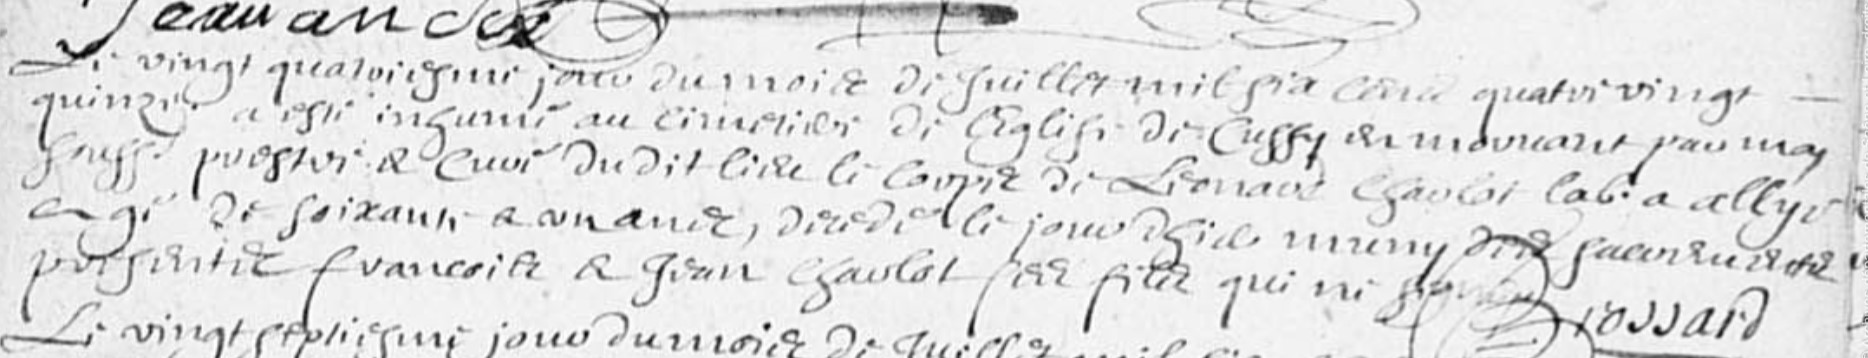 Le vingt quatriesme jour du mois de Juillet mil six cens quatre vingt
quinze a esté inhumé au cimetiere de l'Eglise de Cussy en morvant par moy
soussé prestre & Curé dudit lieu le corps de Leonard Charlot lab. a
agé de soixante & un ans, decedé le jour d'hier muny des sacremens
presentes francois & Jean Charlot ses fils qui ne
Le vingt septiesme jour du mois de Juillet mil six